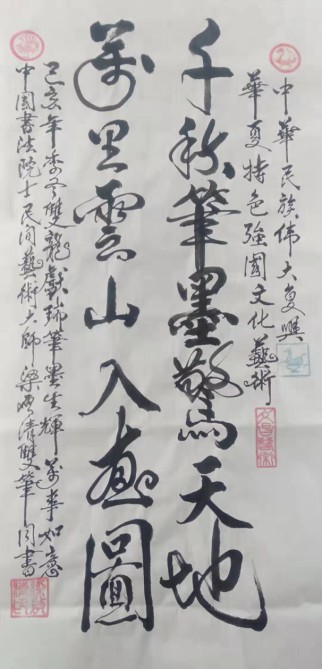 中華民族偉大复興
華夏特色強國文化藝術
千秋筆墨驚天地
萬里雲山入畫圖
己亥年雙龍獻瑞筆墨生輝萬事如意
中國書法院士民間藝術大師梁清雙筆同書